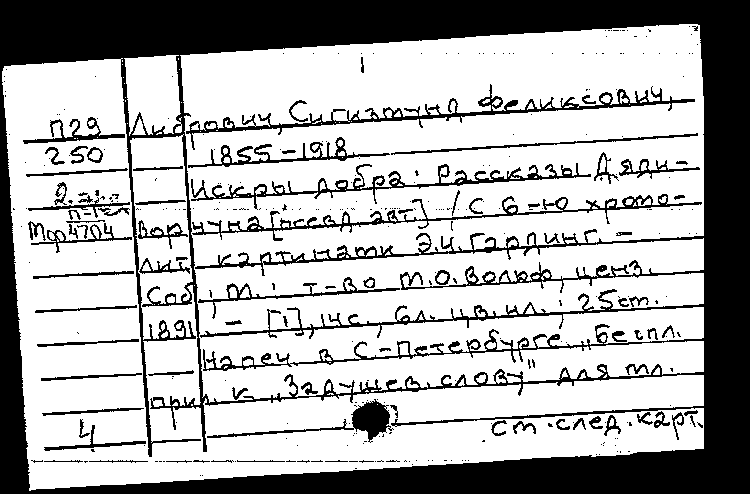 П29 Либрович, Сигизмунд Феликсович,
250 1855-1918.
Искры добра: Рассказы Дяди-
Мф4704 Ворчуна [псевд. авт.] / С 6-ю хромо-
лит. картинами Э.И. Гардинг. -
Спб.; М.: т-во М.О. Вольф, ценз.
1891. - [1], 14с., 6л. цв. ил.; 25см.
Напеч. в С-Петербурге. „Беспл.
прил. к „Задушев. слову" для мл.
4 см. след. карт.